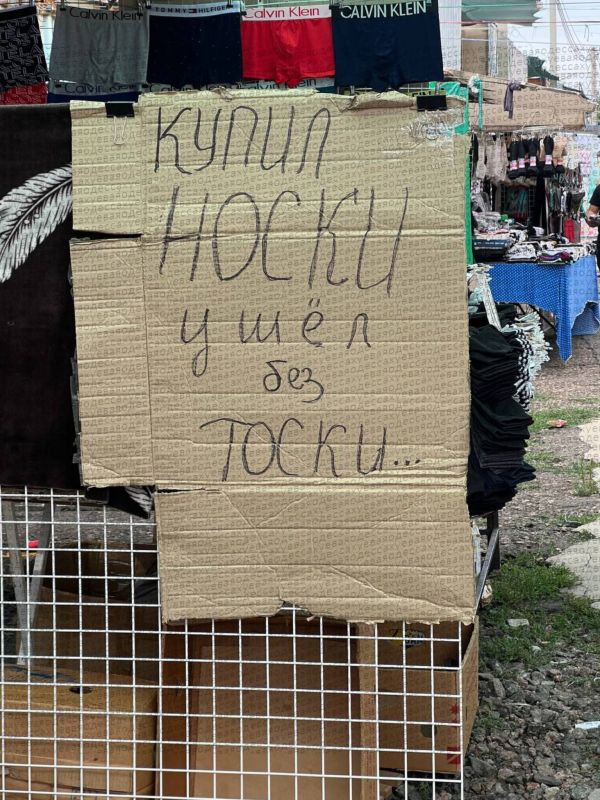 TOMMY HILFIGER
Calvin Klein
Calvin Klein
CALVIN KLEIN
КУПИЛ
НОСКИ
ушёл
без
ТОСКИ...